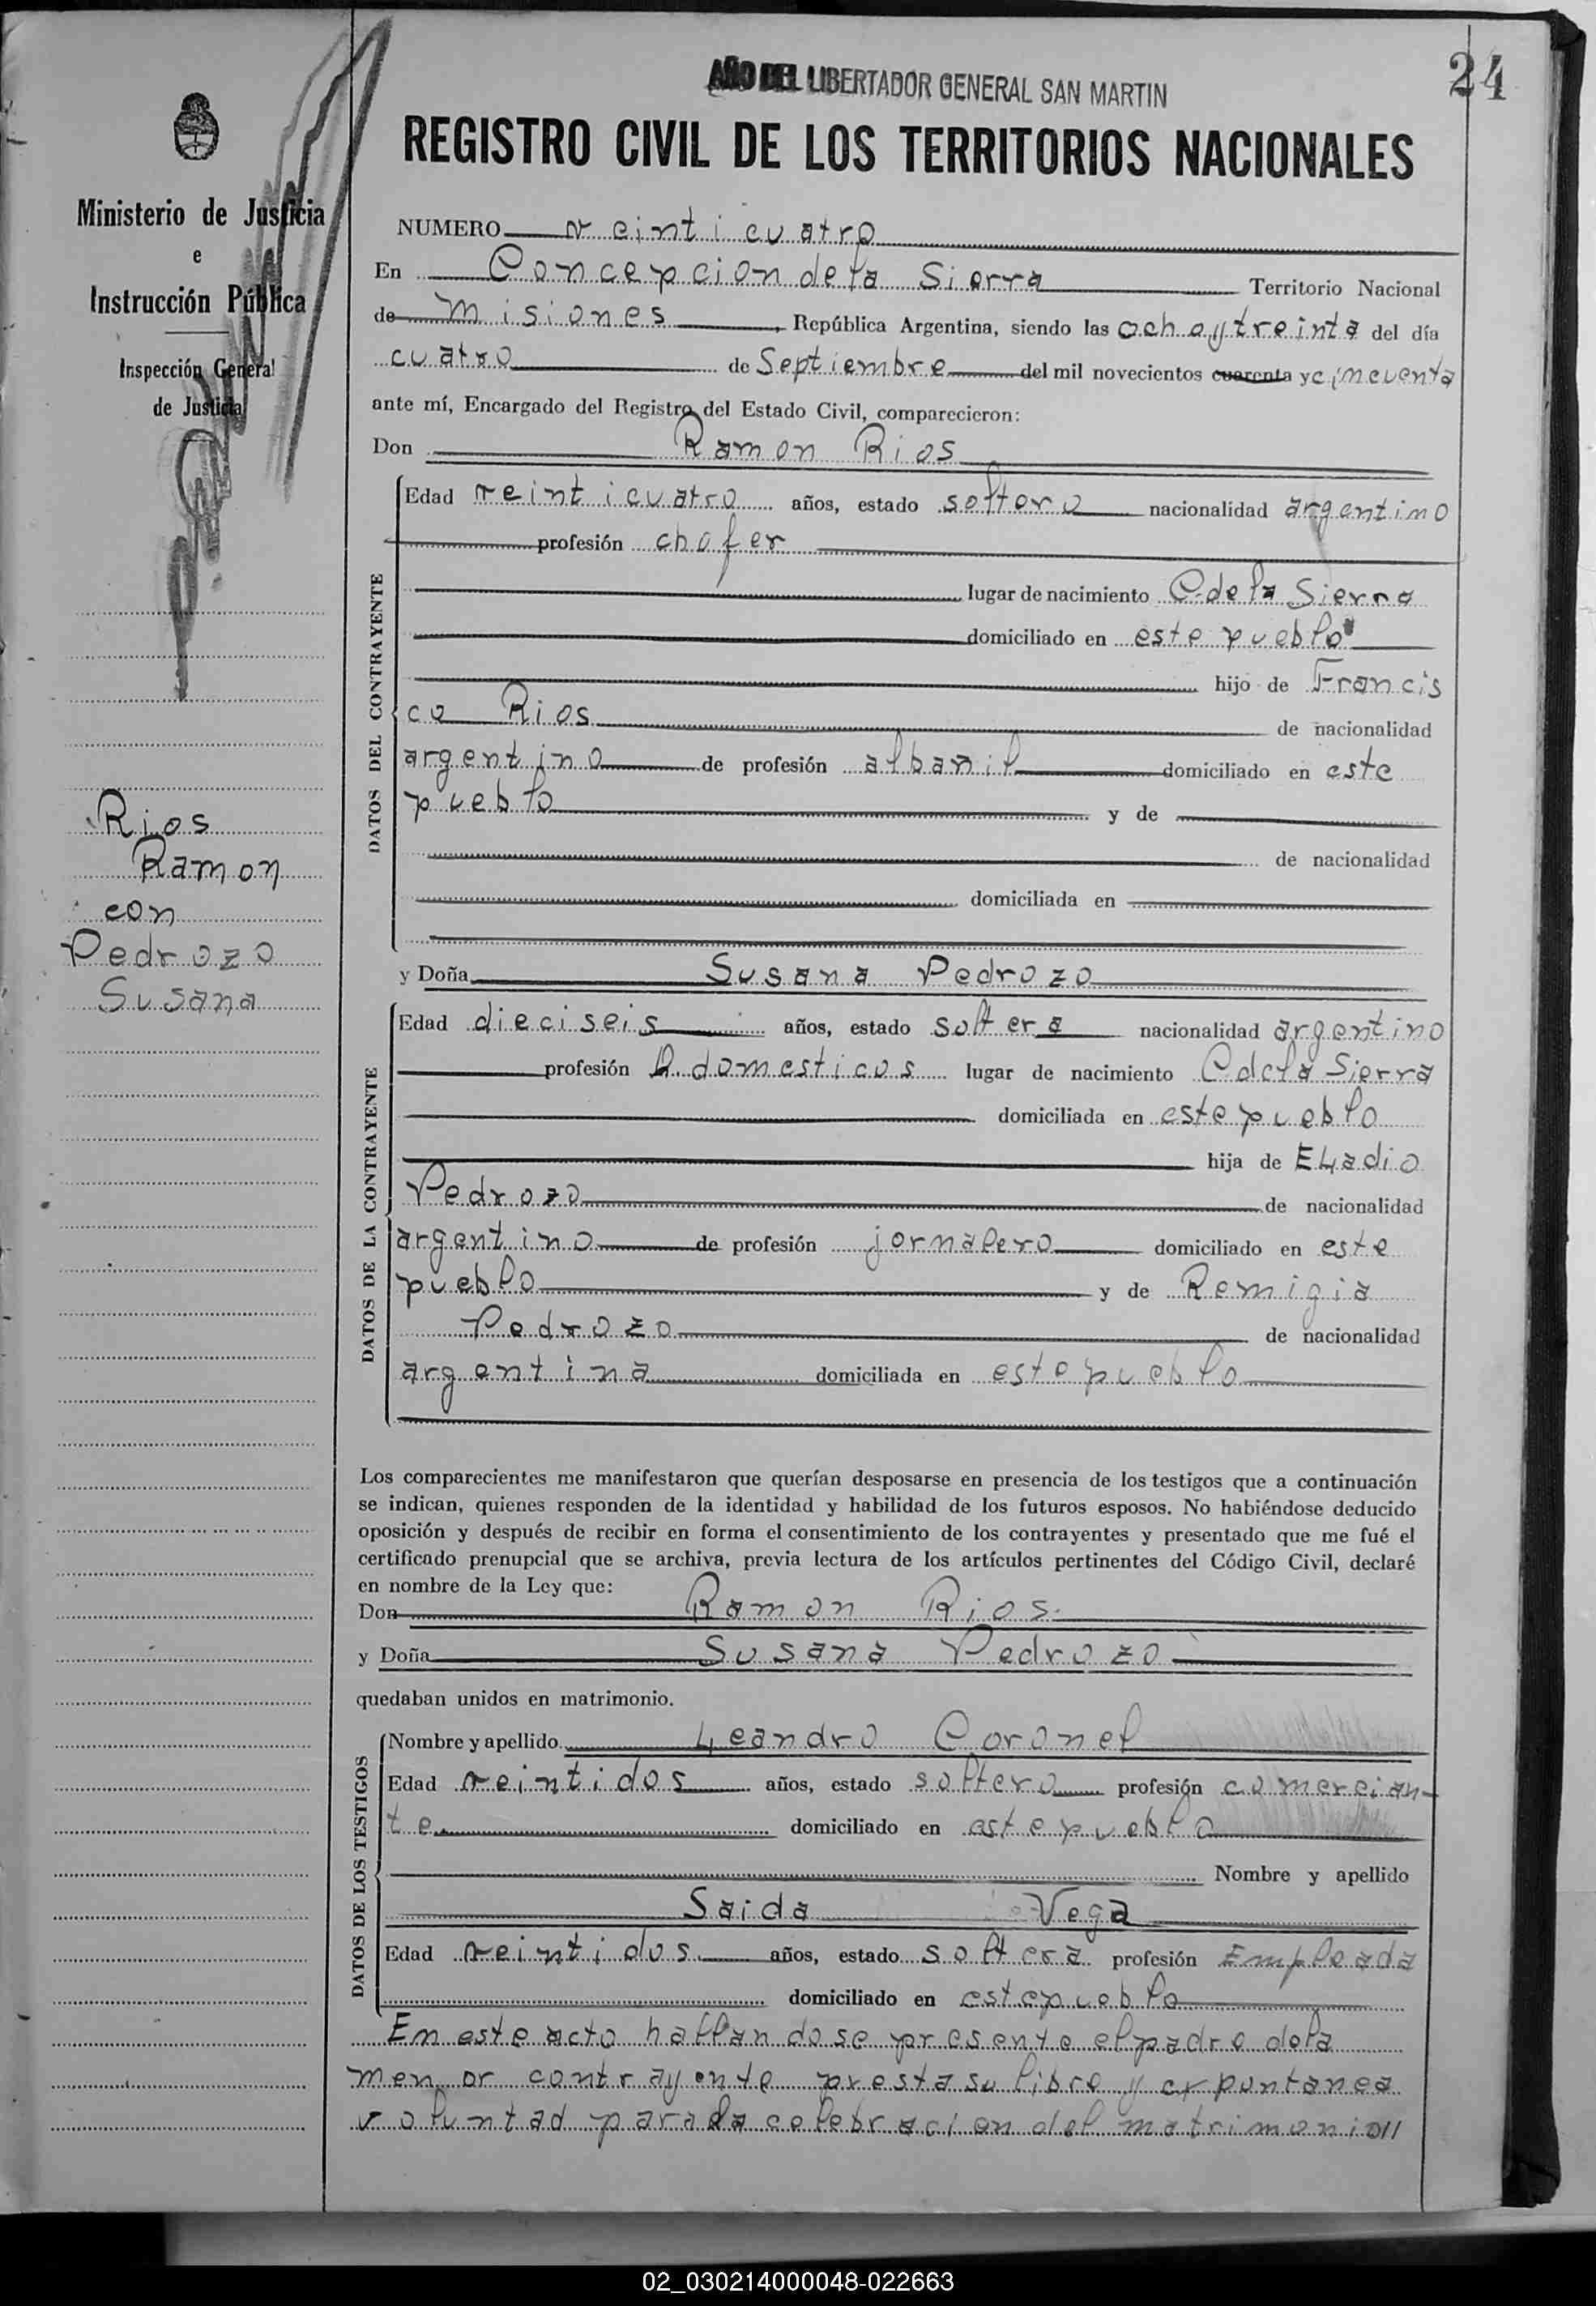 24
AÑO DEL LIBERTADOR GENERAL SAN MARTIN
REGISTRO CIVIL DE LOS TERRITORIOS NACIONALES
Ministerio de Justicia
e
Instrucción Pública
Inspección General
de Justicia
Rios
Ramon
con
Pedrozo
Susana
NUMERO veinticuatro
En Concepcion de la Sierra Territorio Nacional
de misiones, República Argentina, siendo las ocho y treinta del día
cuatro de Septiembre del mil novecientos cuarenta y cincuenta
ante mí, Encargado del Registro del Estado Civil, comparecieron:
Don Ramon Rios
DATOS DEL CONTRAYENTE
Edad veinticuatro años, estado soltero nacionalidad argentino
profesión chofer
lugar de nacimiento C. de la Sierra
domiciliado en este pueblo
hijo de Francis
co Rios de nacionalidad
argentino de profesión albañil domiciliado en este
pueblo y de
de nacionalidad
domiciliada en
y Doña Susana Pedrozo
DATOS DE LA CONTRAYENTE
Edad dieciseis años, estado soltera nacionalidad argentino
profesión Q. domesticos lugar de nacimiento C de la Sierra
domiciliada en este pueblo
hija de ELadio
Pedrozo de nacionalidad
argentino de profesión jornalero domiciliado en este
pueblo y de Remigia
Pedrozo de nacionalidad
argentina domiciliada en este pueblo
Los comparecientes me manifestaron que querían desposarse en presencia de los testigos que a continuación
se indican, quienes responden de la identidad y habilidad de los futuros esposos. No habiéndose deducido
oposición y después de recibir en forma el consentimiento de los contrayentes y presentado que me fué el
certificado prenupcial que se archiva, previa lectura de los artículos pertinentes del Código Civil, declaré
en nombre de la Ley que:
Don Ramon Rios.
y Doña Susana Pedrozo
quedaban unidos en matrimonio.
DATOS DE LOS TESTIGOS
Nombre y apellido Leandro Coronel
Edad veintidos años, estado soltero profesión comercian-
te. domiciliado en este pueblo
Nombre y apellido
Saida Vega
Edad veintidos. años, estado soltera profesión Empleada
domiciliado en este pueblo
En este acto hallandose presente el padre de la
menor contrayente presta su libre y expontanea
voluntad para la celebracion del matrimonio//
02_030214000048-022663